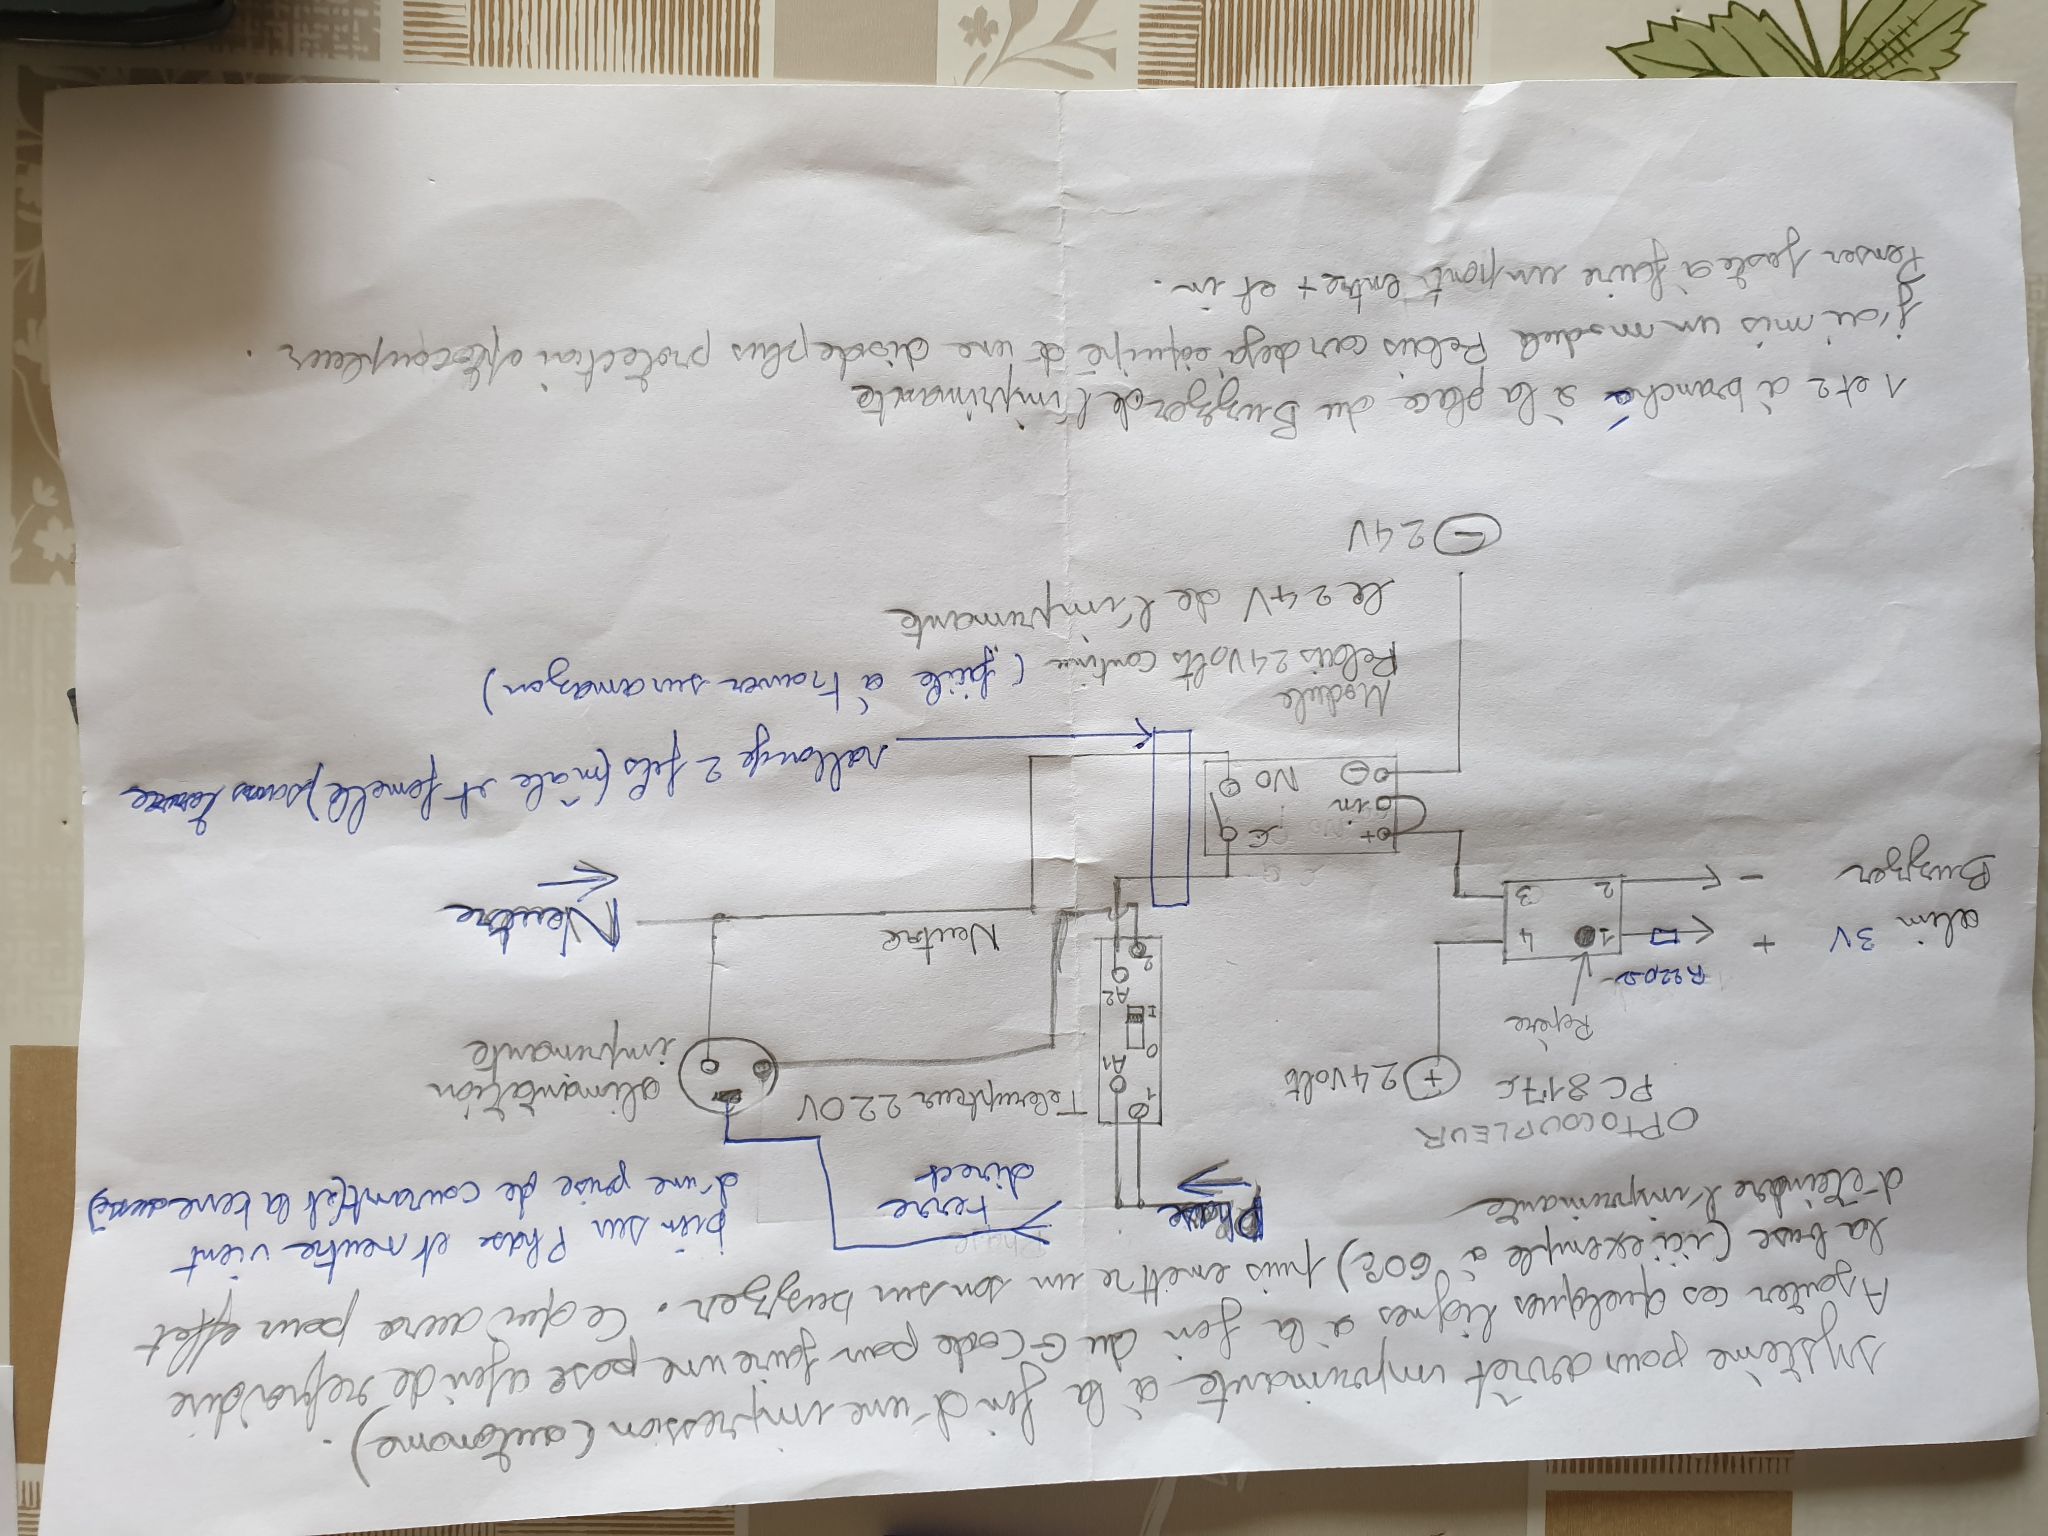 Système pour arrêt imprimante à la fin d'une impression (autonome).
Ajouter ces quelques lignes à la fin du G-Code pour faire une pose afin de refroidir
la buse (ici exemple à 60°c) puis emettre un son sur buzzer. Ce qui aura pour effet
d'eteindre l'imprimante
bien sur Phase et neutre vient
d'une prise de courant (et la terre aussi)
OPTOCOUPLEUR
PC 817c
Repère
R220Ω
alim 3V
Buzzer
+
-
1
2
3
4
+ 24Volt
Phase
Terre
direct
Telerupteur 220V
1
A1
O
I
A2
2
alimantation
imprimante
Neutre
Neutre
+
in
-
C
NO
rallonge 2 fils (mâle et femelle) sans terre
Module
Relais 24Volts continu (facile à trouver sur amazon)
le 24V de l'imprimante
- 24V
1 et 2 à branché à la place du Buzzer de l'imprimante
j'ai mis un module Relais car deja équipé d'une diode plus protection optocoupleur.
Penser juste à faire un pont entre + et in.